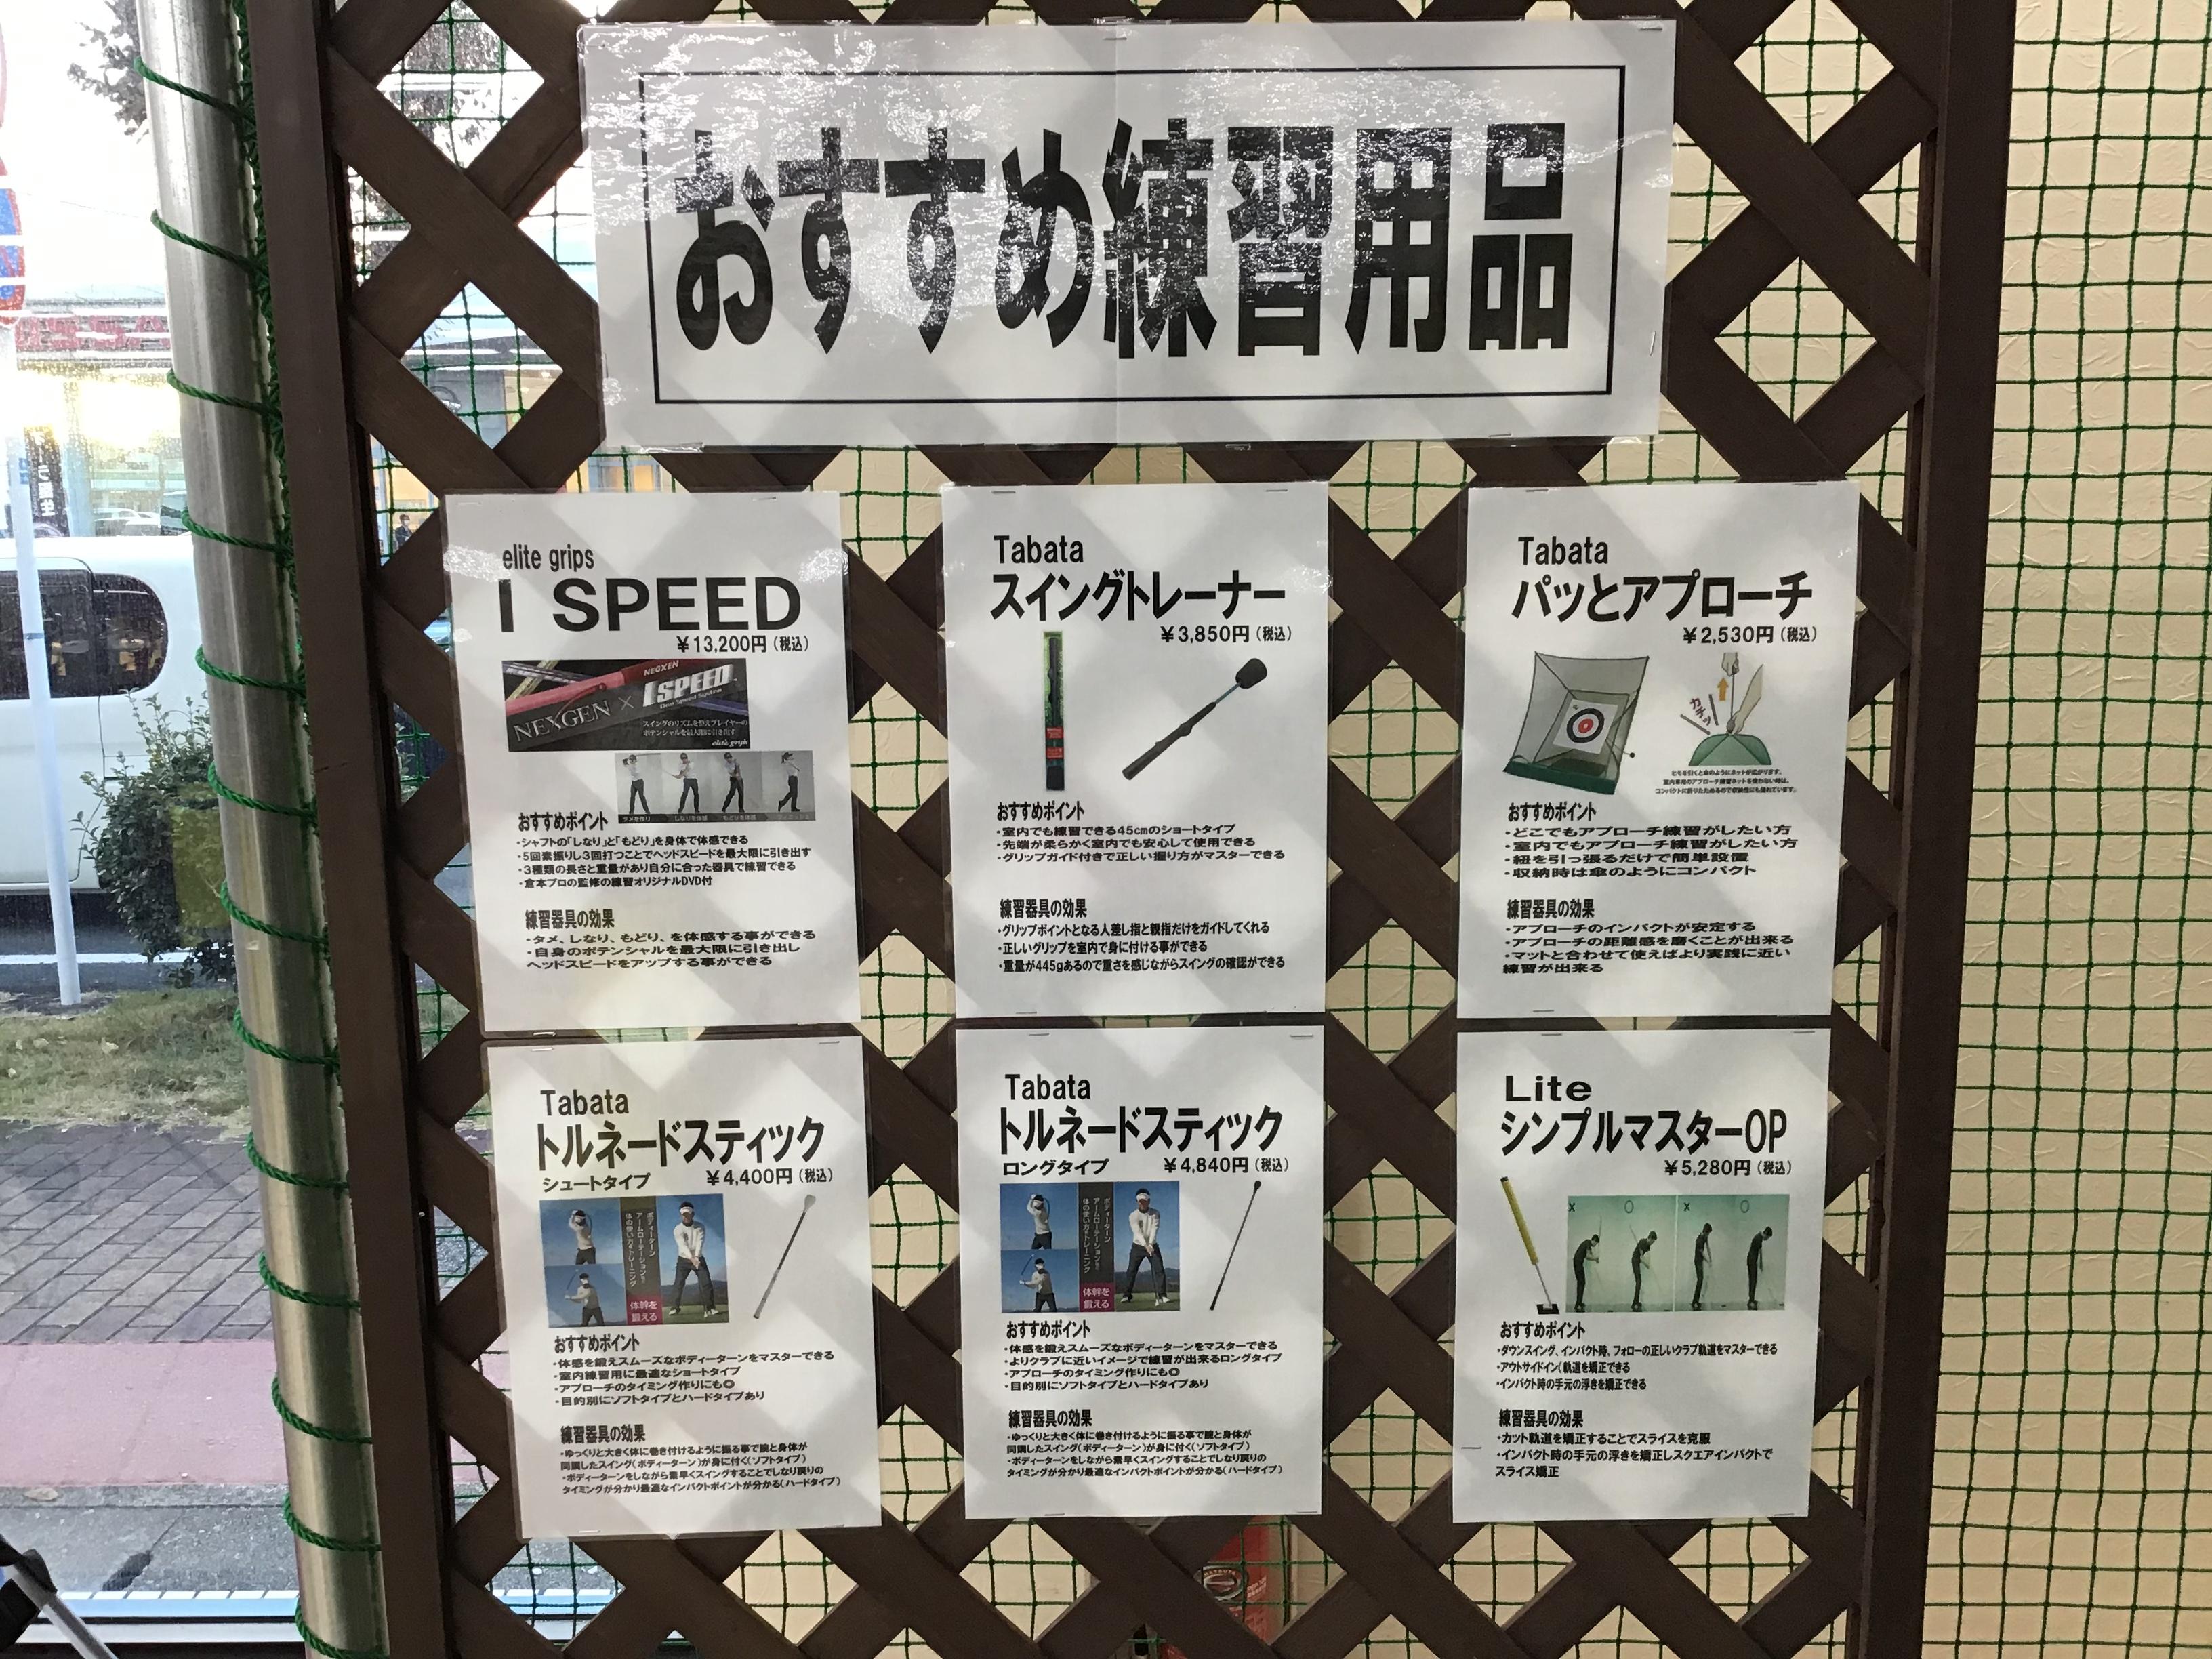 おすすめ練習用品
elite grips
I SPEED
￥13,200円（税込）
NEGXEN
NEXGEN × I SPEED
スイングのリズムを整えプレイヤーの
ポテンシャルを最大限に引き出す
elite grips
タメを作り しなりを体感 もどりを体感
おすすめポイント
・シャフトの「しなり」と「もどり」を身体で体感できる
・5回素振りし3回打つことでヘッドスピードを最大限に引き出す
・3種類の長さと重量があり自分に合った器具で練習できる
・倉本プロの監修の練習オリジナルDVD付
練習器具の効果
・タメ、しなり、もどり、を体感する事ができる
・自身のポテンシャルを最大限に引き出し
ヘッドスピードをアップする事ができる
Tabata
スイングトレーナー
￥3,850円（税込）
おすすめポイント
・室内でも練習できる45cmのショートタイプ
・先端が柔らかく室内でも安心して使用できる
・グリップガイド付きで正しい握り方がマスターできる
練習器具の効果
・グリップポイントとなる人差し指と親指だけをガイドしてくれる
・正しいグリップを室内で身に付ける事ができる
・重量が445gあるので重さを感じながらスイングの確認ができる
Tabata
パッとアプローチ
￥2,530円（税込）
カチッ
ヒモを引くと傘のようにネットが広がります。
室内専用のアプローチ練習ネットを使わない時は、
コンパクトに折りたためるので収納性にも優れています。
おすすめポイント
・どこでもアプローチ練習がしたい方
・室内でもアプローチ練習がしたい方
・紐を引っ張るだけで簡単設置
・収納時は傘のようにコンパクト
練習器具の効果
・アプローチのインパクトが安定する
・アプローチの距離感を磨くことが出来る
・マットと合わせて使えばより実践に近い
練習が出来る
Tabata
トルネードスティック
シュートタイプ ￥4,400円（税込）
ボディーターン
アームローテーションを
体の使い方をトレーニング
体幹を
鍛える
おすすめポイント
・体感を鍛えスムーズなボディーターンをマスターできる
・室内練習用に最適なショートタイプ
・アプローチのタイミング作りにも◎
・目的別にソフトタイプとハードタイプあり
練習器具の効果
・ゆっくりと大きく体に巻き付けるように振る事で腕と身体が
同調したスイング（ボディーターン）が身に付く（ソフトタイプ）
・ボディーターンをしながら素早くスイングすることでしなり戻りの
タイミングが分かり最適なインパクトポイントが分かる（ハードタイプ）
Tabata
トルネードスティック
ロングタイプ ￥4,840円（税込）
ボディーターン
アームローテーションを
体の使い方をトレーニング
体幹を
鍛える
おすすめポイント
・体感を鍛えスムーズなボディーターンをマスターできる
・よりクラブに近いイメージで練習が出来るロングタイプ
・アプローチのタイミング作りにも◎
・目的別にソフトタイプとハードタイプあり
練習器具の効果
・ゆっくりと大きく体に巻き付けるように振る事で腕と身体が
同調したスイング（ボディーターン）が身に付く（ソフトタイプ）
・ボディーターンをしながら素早くスイングすることでしなり戻りの
タイミングが分かり最適なインパクトポイントが分かる（ハードタイプ）
Lite
シンプルマスターOP
￥5,280円（税込）
X O X O
おすすめポイント
・ダウンスイング、インパクト時、フォローの正しいクラブ軌道をマスターできる
・アウトサイドイン（軌道を矯正できる
・インパクト時の手元の浮きを矯正できる
練習器具の効果
・カット軌道を矯正することでスライスを克服
・インパクト時の手元の浮きを矯正しスクエアインパクトで
スライス矯正